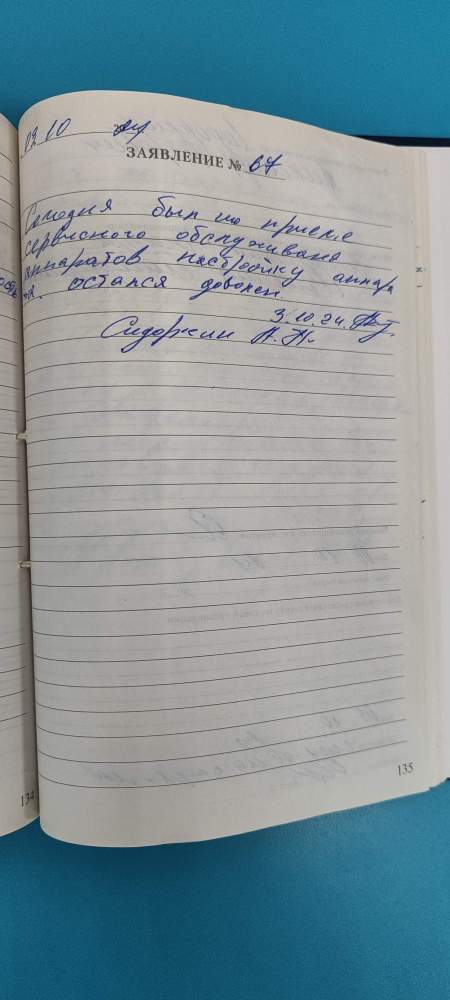 03 10 24
ЗАЯВЛЕНИЕ № 67
Сегодня был на приеме
сервисного обслуживания
аппаратов настройку аппара
та. остался доволен.
3.10.24.
Сидоркин А. Н.
134
135